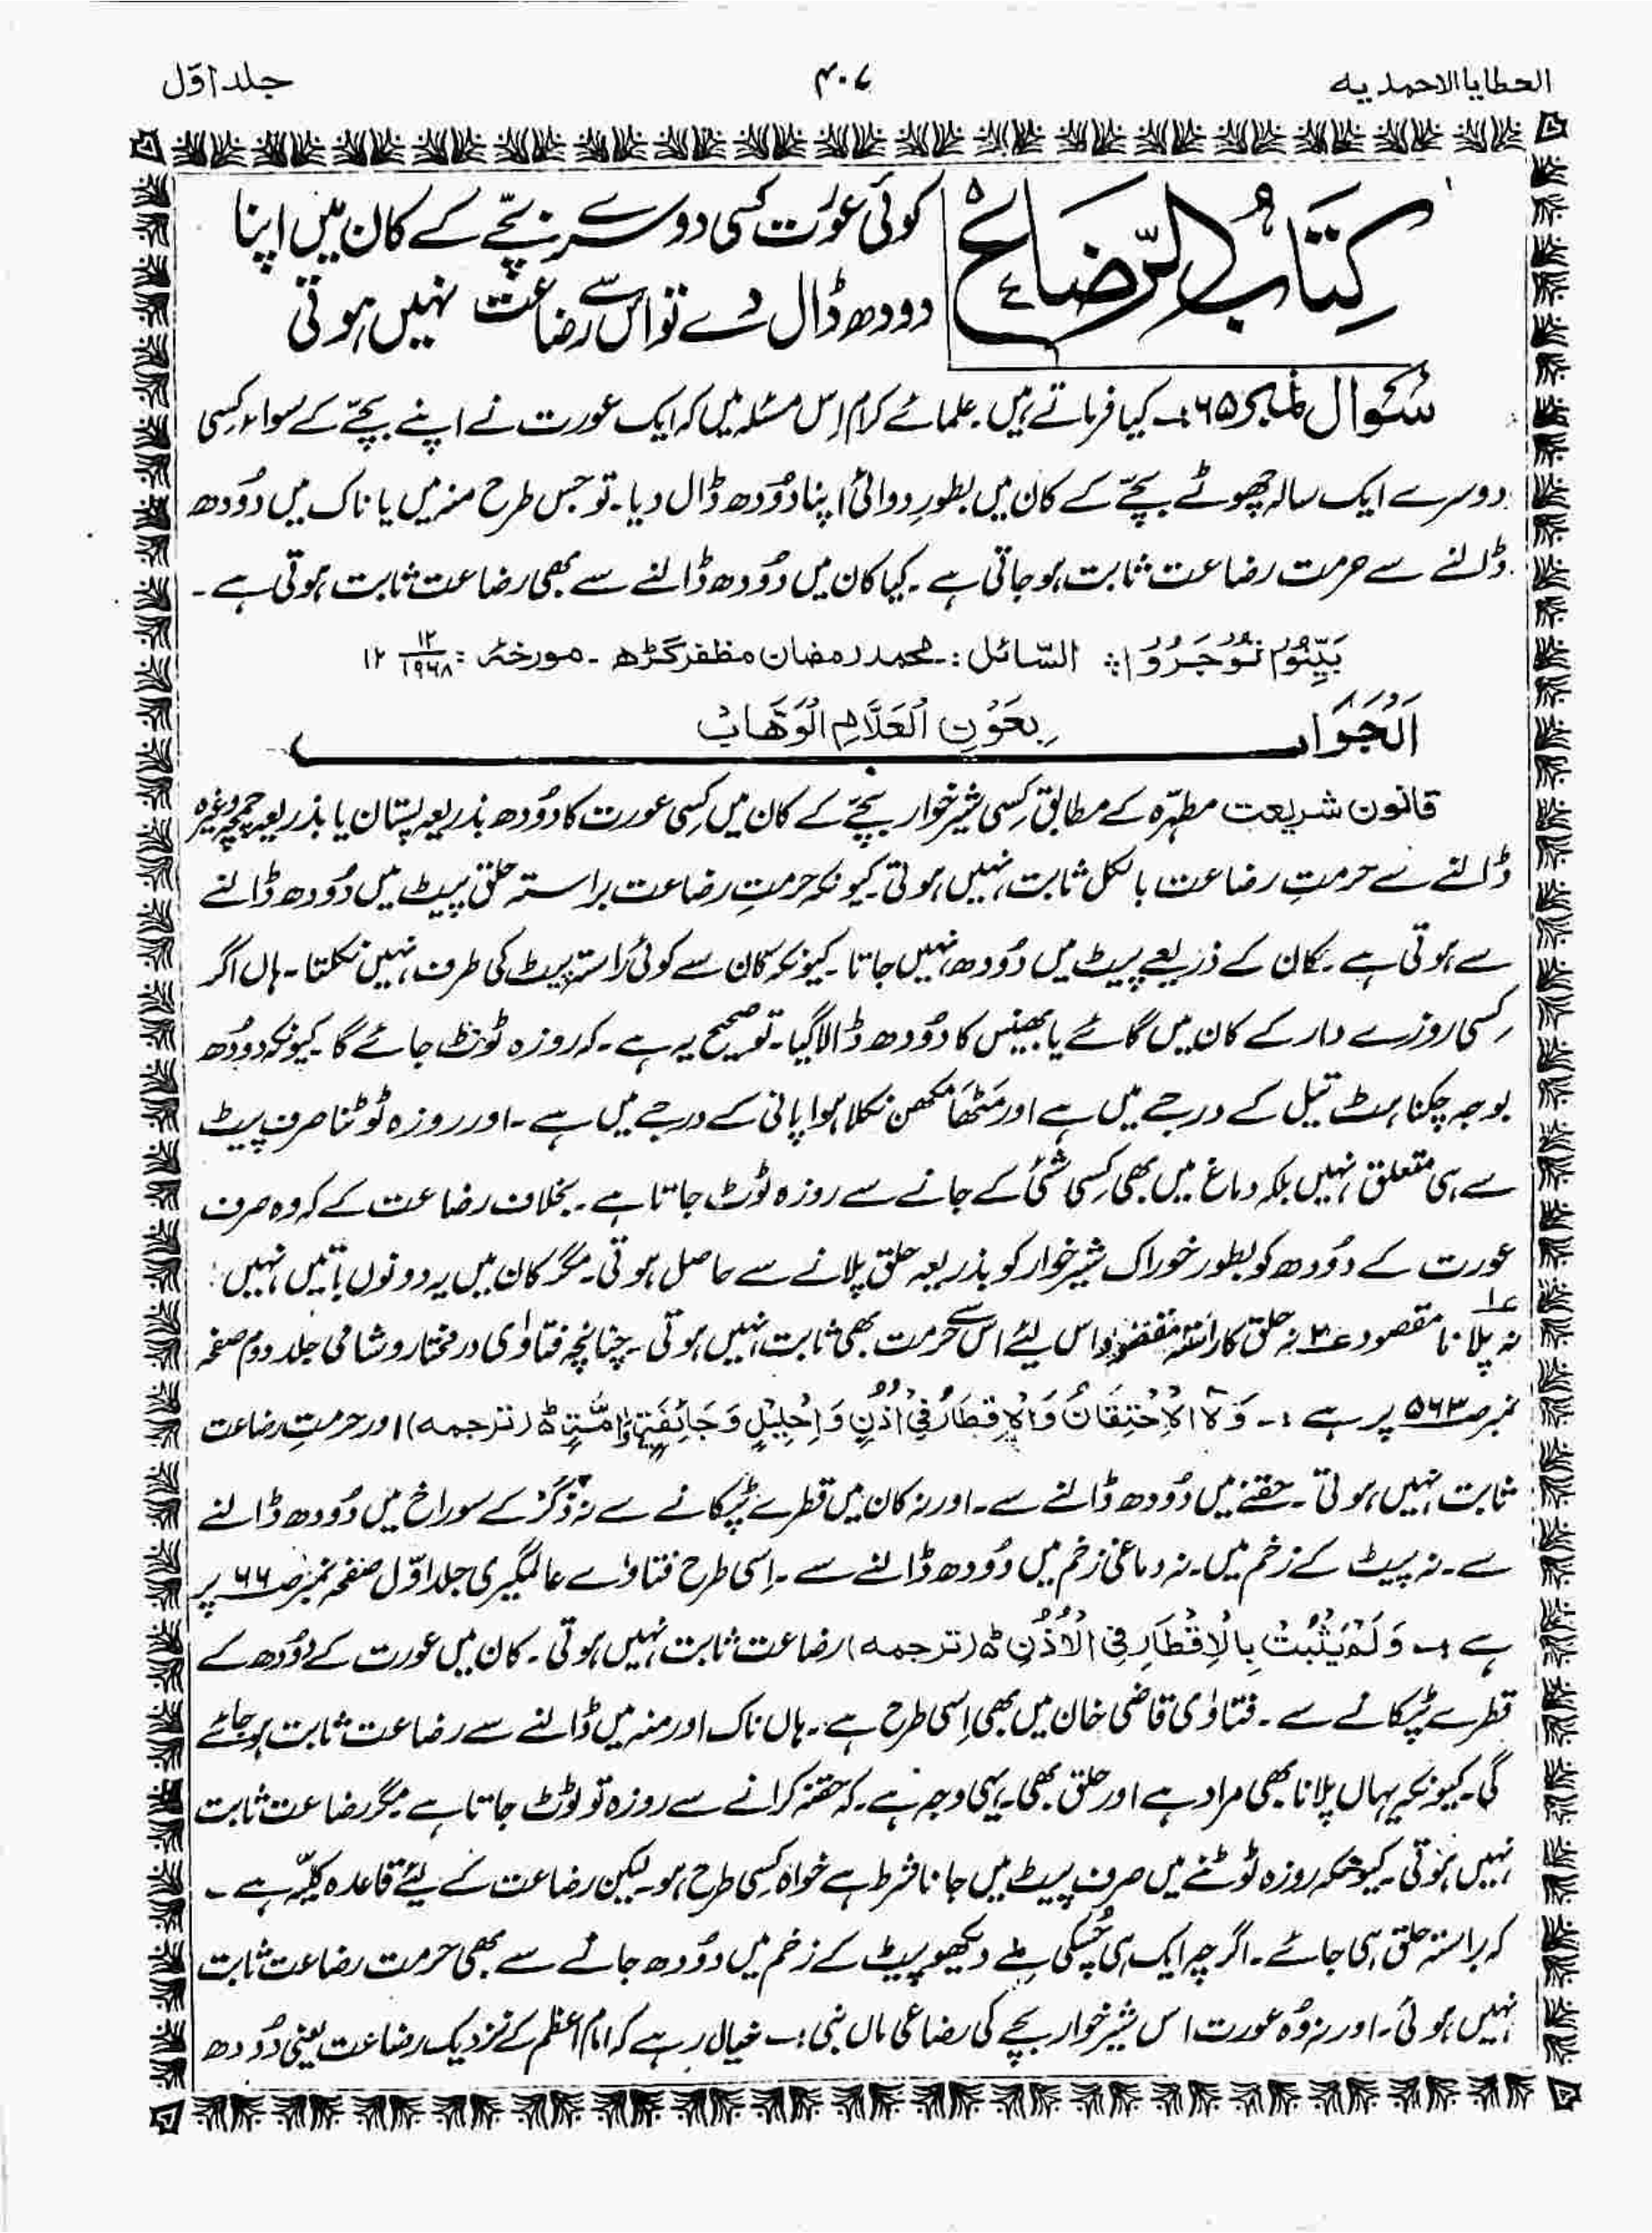 العطایا الاحمدیہ
۴۰۷
جلد اوّل
کِتَابُ الرِّضَاعِ
کوئی عورت کسی دوسرے بچّے کے کان میں اپنا
دودھ ڈال دے تو اس سے رضاعت نہیں ہوتی
سوال نمبر ۶۵ :- کیا فرماتے ہیں علمائے کرام اِس مسئلہ میں کہ ایک عورت نے اپنے بچّے کے سواء کسی
دوسرے ایک سالہ چھوٹے بچّے کے کان میں بطورِ دوائی اپنا دُودھ ڈال دیا۔ تو جس طرح منہ میں یا ناک میں دُودھ
ڈالنے سے حرمت رضاعت ثابت ہو جاتی ہے۔ کیا کان میں دُودھ ڈالنے سے بھی رضاعت ثابت ہوتی ہے۔
بَیِّنُوْا تُوْجَرُوْا : السّائل :- محمد رمضان مظفر گڑھ - مورخہ : ۱۲/۱۹۶۸ ۱۲
اَلْجَوَابُ
بِعَوْنِ الْعَلَّامِ الْوَھَّابْ
قانون شریعت مطہّرہ کے مطابق کِسی شیر خوار بچّے کے کان میں کِسی عورت کا دُودھ بذریعہ پستان یا بذریعہ چمچہ وغیرہ
ڈالنے سے حرمتِ رضاعت بالکل ثابت نہیں ہوتی۔ کیونکہ حرمتِ رضاعت براستہ حلق پیٹ میں دُودھ ڈالنے
سے ہوتی ہے۔ کان کے ذریعے پیٹ میں دُودھ نہیں جاتا۔ کیونکہ کان سے کوئی راستہ پیٹ کی طرف نہیں نکلتا۔ ہاں اگر
کِسی روزے دار کے کان میں گائے یا بھینس کا دُودھ ڈالا گیا۔ تو صحیح یہ ہے۔ کہ روزہ ٹوٹ جائے گا۔ کیونکہ دودُھ
بوجہ چکناہٹ تیل کے درجے میں ہے اور مَٹھا مکھن نکلا ہوا پانی کے درجے میں ہے۔ اور روزہ ٹوٹنا صرف پیٹ
سے ہی متعلق نہیں بلکہ دماغ میں بھی کِسی شئی کے جانے سے روزہ ٹوٹ جاتا ہے۔ بخلاف رضاعت کے کہ وہ صرف
عورت کے دُودھ کو بطور خوراک شیر خوار کو بذریعہ حلق پلانے سے حاصل ہوتی۔ مگر کان میں یہ دونوں باتیں نہیں :
۱؎ نہ پلانا مقصود ۲؎ نہ حلق کا راستہ مقصود اس لیئے اس سے حرمت بھی ثابت نہیں ہوتی۔ چنانچہ فتاوٰی درمختار و شامی جلد دوم صفحہ
نمبر ۵۶۳ پر ہے :- وَلَا الْاِحْتِقَانُ وَالْاِقْطَارُ فِیْ اُذُنٍ وَاِحْلِیْلٍ وَجَائِفَۃٍ وَّاٰمَّۃٍ ط (ترجمہ) اور حرمتِ رضاعت
ثابت نہیں ہوتی۔ حقنے میں دُودھ ڈالنے سے۔ اور نہ کان میں قطرے ٹپکانے سے نہ ذَکَرْ کے سوراخ میں دُودھ ڈالنے
سے۔ نہ پیٹ کے زخم میں۔ نہ دماغی زخم میں دُودھ ڈالنے سے۔ اِسی طرح فتاواے عالمگیری جلد اوّل صفحہ نمبر ۶۶ پر
ہے :- وَلَمْ یَثْبُتْ بِالْاِقْطَارِ فِی الْاُذُنِ ط (ترجمہ) رضاعت ثابت نہیں ہوتی۔ کان میں عورت کے دُودھ کے
قطرے ٹپکانے سے۔ فتاوٰی قاضی خان میں بھی اِسی طرح ہے۔ ہاں ناک اور منہ میں ڈالنے سے رضاعت ثابت ہو جائے
گی۔ کیونکہ یہاں پلانا بھی مراد ہے اور حلق بھی۔ یہی وجہ ہے۔ کہ حقنہ کرانے سے روزہ تو ٹوٹ جاتا ہے مگر رضاعت ثابت
نہیں ہوتی۔ کیونکہ روزہ ٹوٹنے میں صرف پیٹ میں جانا شرط ہے خواہ کسی طرح ہو۔ لیکن رضاعت کے لیئے قاعدہ کلیّہ ہے۔
کہ براستہ حلق ہی جائے۔ اگرچہ ایک ہی چُسکی ملے دیکھو پیٹ کے زخم میں دوُدھ جانے سے بھی حرمت رضاعت ثابت
نہیں ہوئی۔ اور نہ وُہ عورت اس شیر خوار بچے کی رضاعی ماں بنی :- خیال رہے کہ امام اعظم کے نزدیک رضاعت یعنی دُودھ